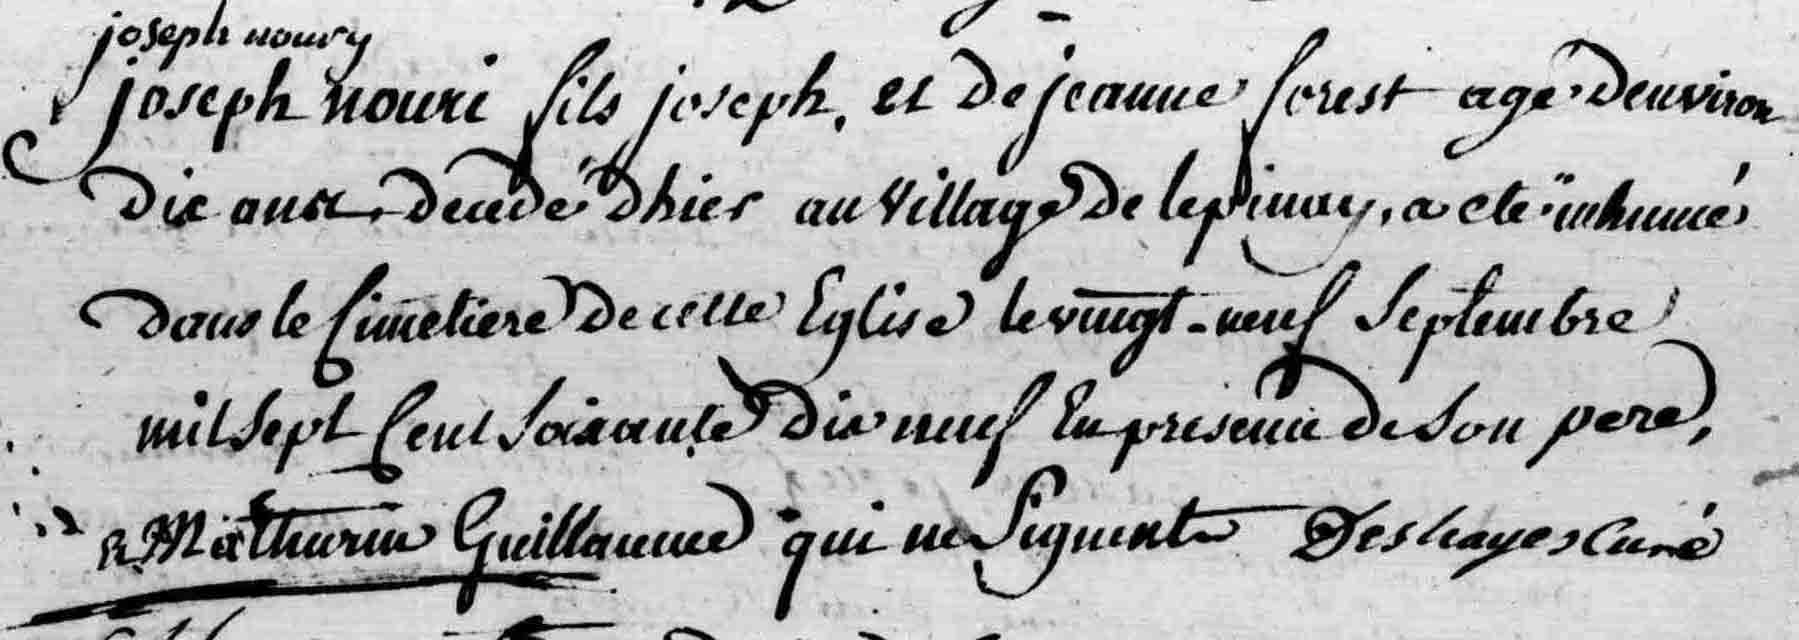 joseph noury
joseph nouri fils joseph, et de jeanne forest agé denviron
dix ans, decedé dhier au village de lepinay, a eté inhumé
dans le Cimetiere de cette Eglise le vingt-neuf Septembre
mil sept Cent soixante dix neuf En presence de son pere,
& Mathurin Guillaume qui ne Signent Deshayes Curé